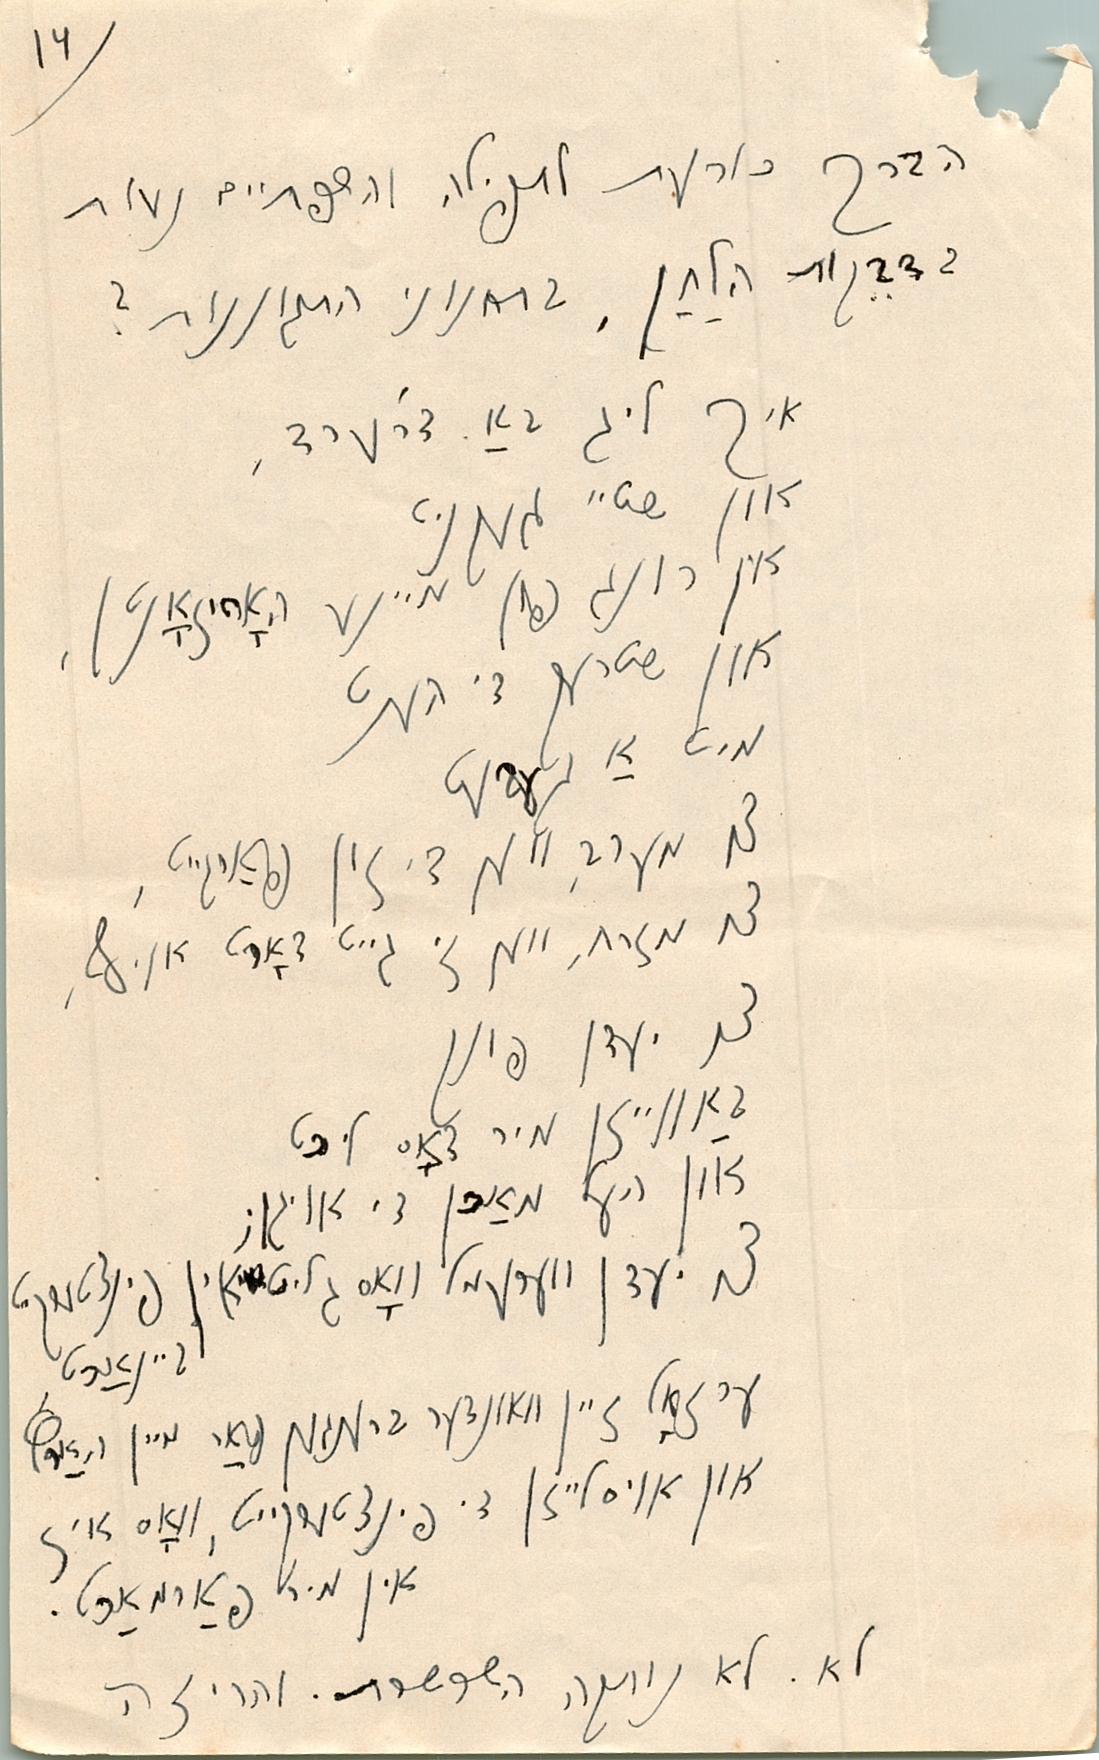 14
הברך כורעת לתפילה והשפתיים נעות
בדבֵקות הלַחַן, בתחנוני התגוננות?
איך ליג באַ דר'ערד,
און שטיי געקניט
אין רונג פון מיינע האָריזאָנטן,
און שטרעק די הענט
מיט אַ געבעט
צו מערב, ווּ די זון פאַרגייט,
צו מזרח, ווּ זי גייט דאָרט אויף,
צו יעדן פונק
באַווייזן מיר דאָס ליכט
און העל מאַכן די אויגן;
צו יעדן ווערעמל וואָס גליט אין פינצטערקייט
ביינאַכט
ער זאָל זיין וואונדער ברענגען פאַר מיין האַרץ
און אויסלייזן די פינצטערקייט, וואָס איז
אין מיר פאַרמאַכט.
לא. לא נותקה השרשרת. והרי זה